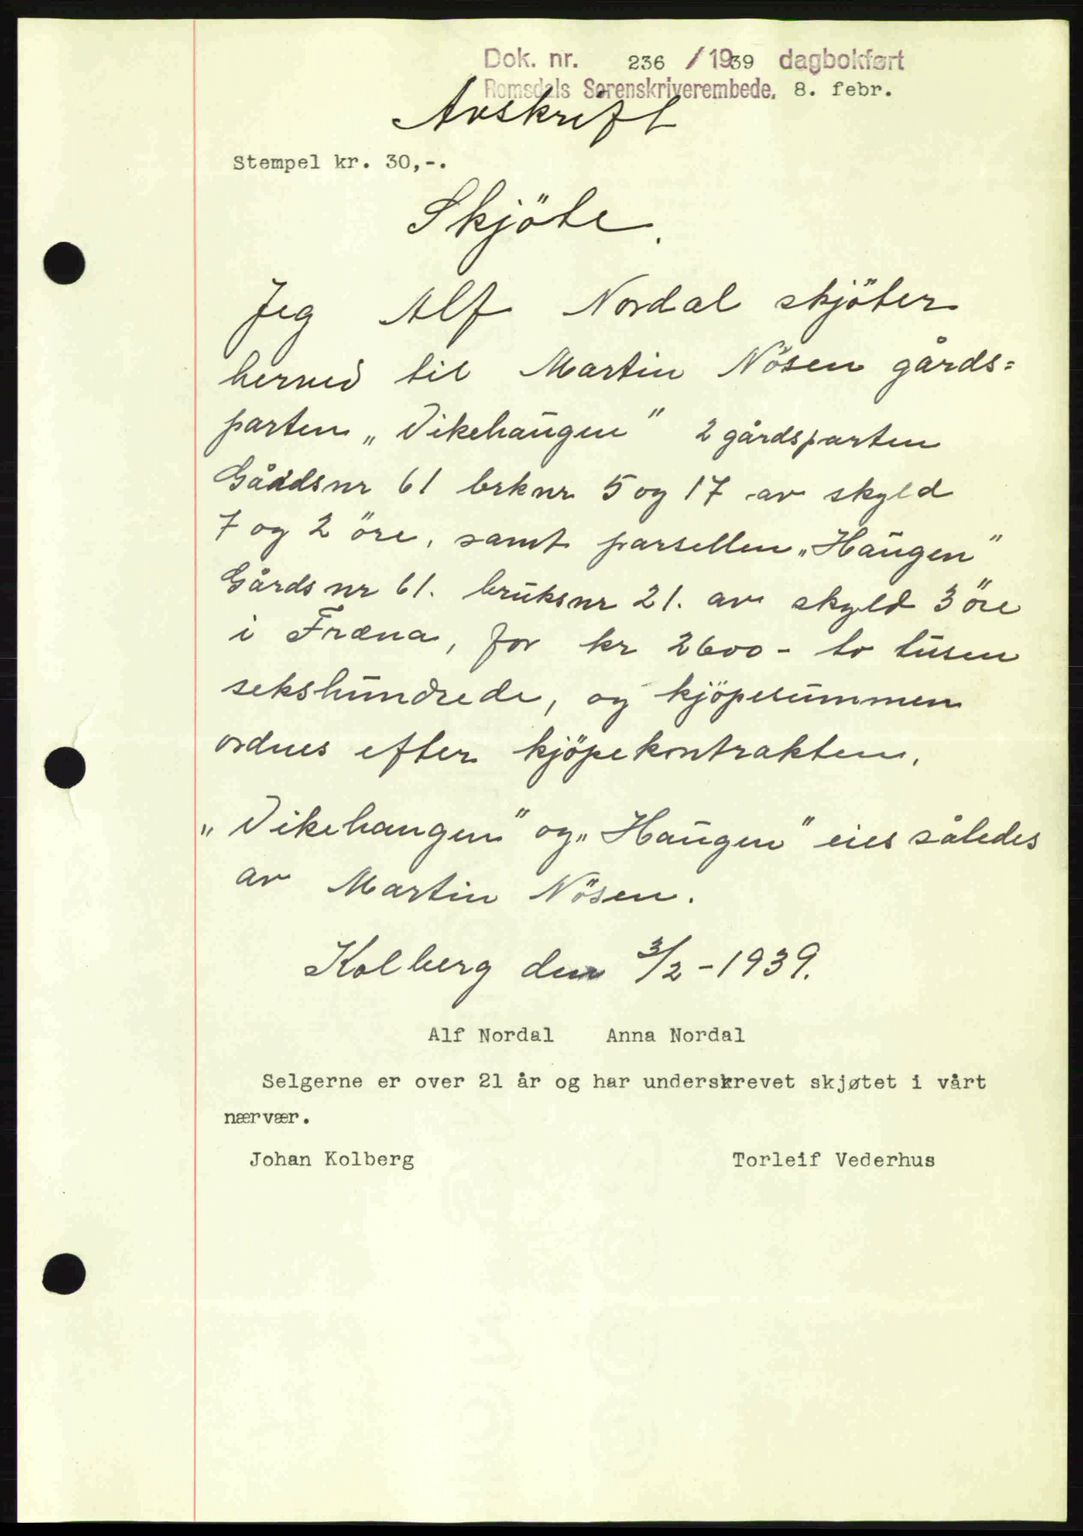 Dok. nr. 236 / 1939 dagbokført
Romsdals Sorenskriverembede. 8. febr.
Avskrift
Stempel kr. 30,-.
Skjöte.
Jeg Alf Nordal skjöter
herved til Martin Nösen gårds=
parten „Vikehaugen" 2 gårdsparten
Gåddsnr 61 brknr 5 og 17 av skyld
7 og 2 öre, samt parsellen „Haugen"
Gårdsnr 61. bruksnr 21. av skyld 3 öre
i Fræna, for kr 2600 - to tusen
sekshundrede, og kjöpesummen
ordnes efter kjöpekontrakten.
„Vikehaugen" og „Haugen" eies således
av Martin Nösen.
Kolberg den 3/2 - 1939.
Alf Nordal Anna Nordal
Selgerne er over 21 år og har underskrevet skjøtet i vårt
nærvær.
Johan Kolberg Torleif Vederhus